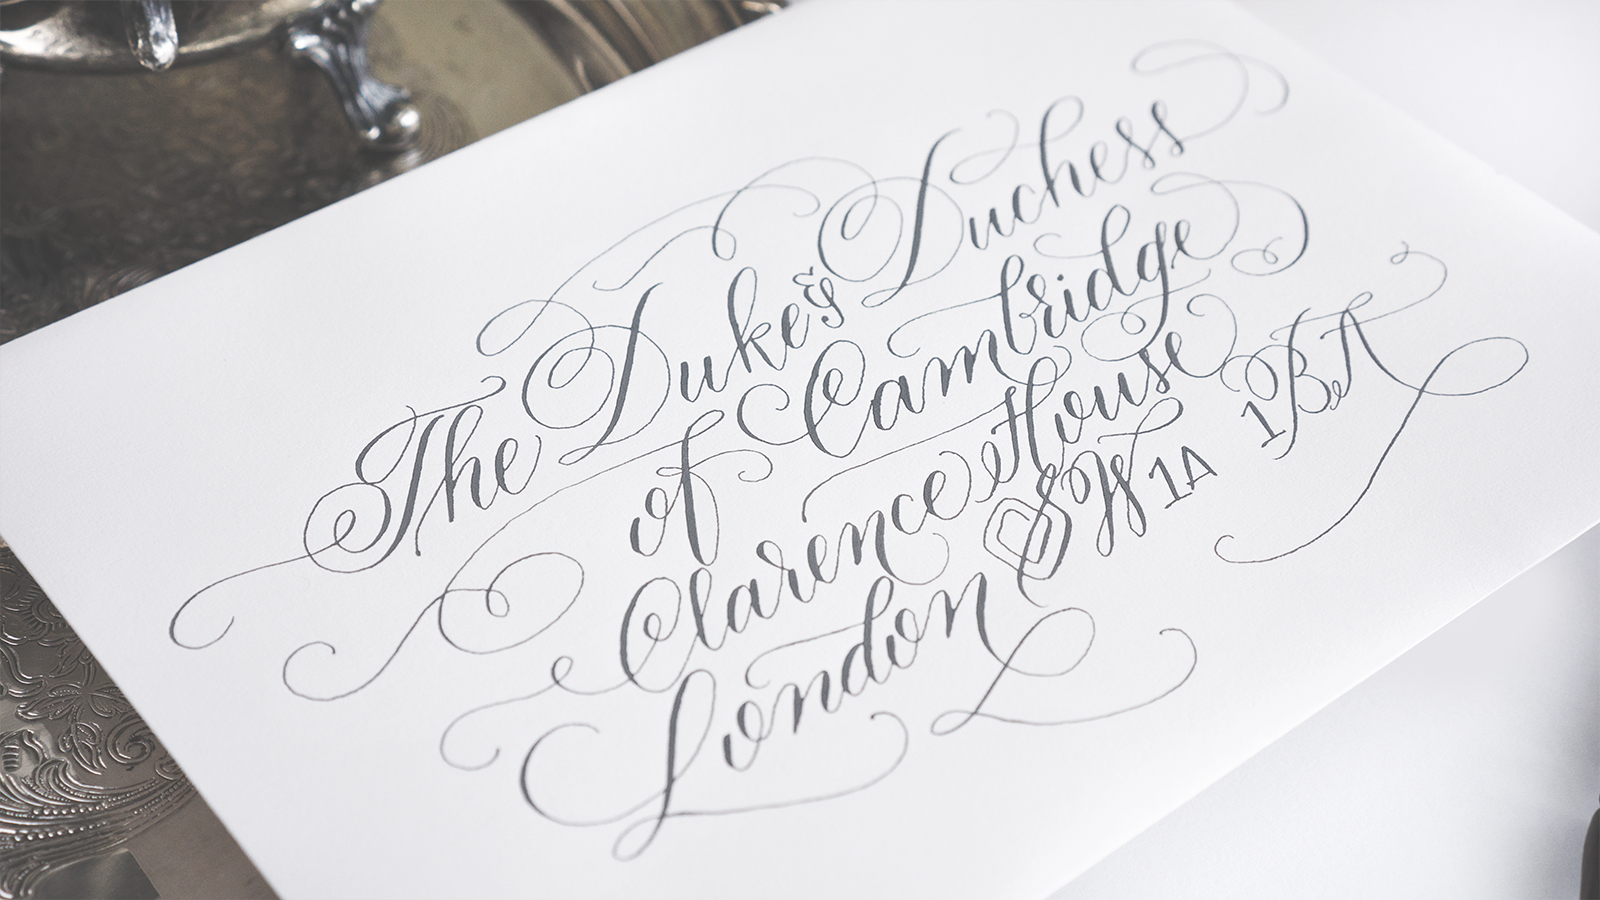 The Duke & Duchess
of Cambridge
Clarence House
London SW1A 1BA